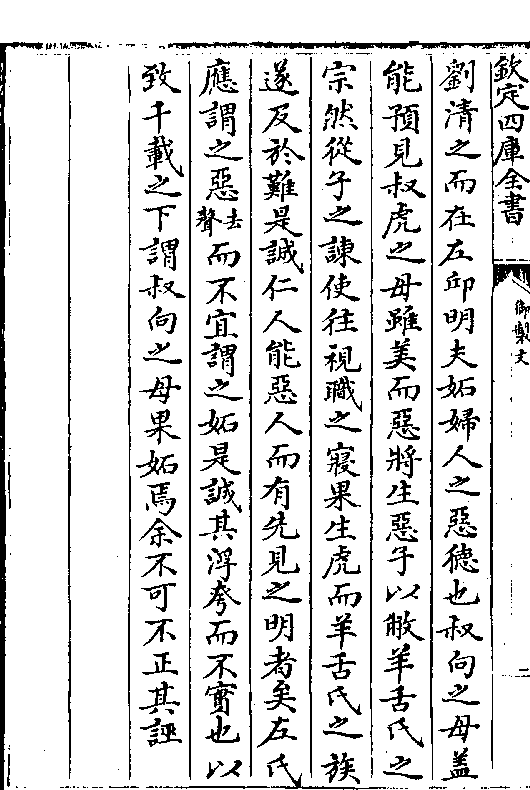 欽定四庫全書
御製文
二
劉清之而在左邱明夫妬婦人之惡德也叔向之母蓋
能預見叔虎之母雖美而惡將生惡子以敝羊舌氏之
宗然從子之諫使往視職之寢果生虎而羊舌氏之族
遂及於難是誠仁人能惡人而有先見之明者矣左氏
應謂之惡去聲而不宜謂之妬是誠其浮夸而不實也以
致千載之下謂叔向之母果妬焉余不可不正其誣